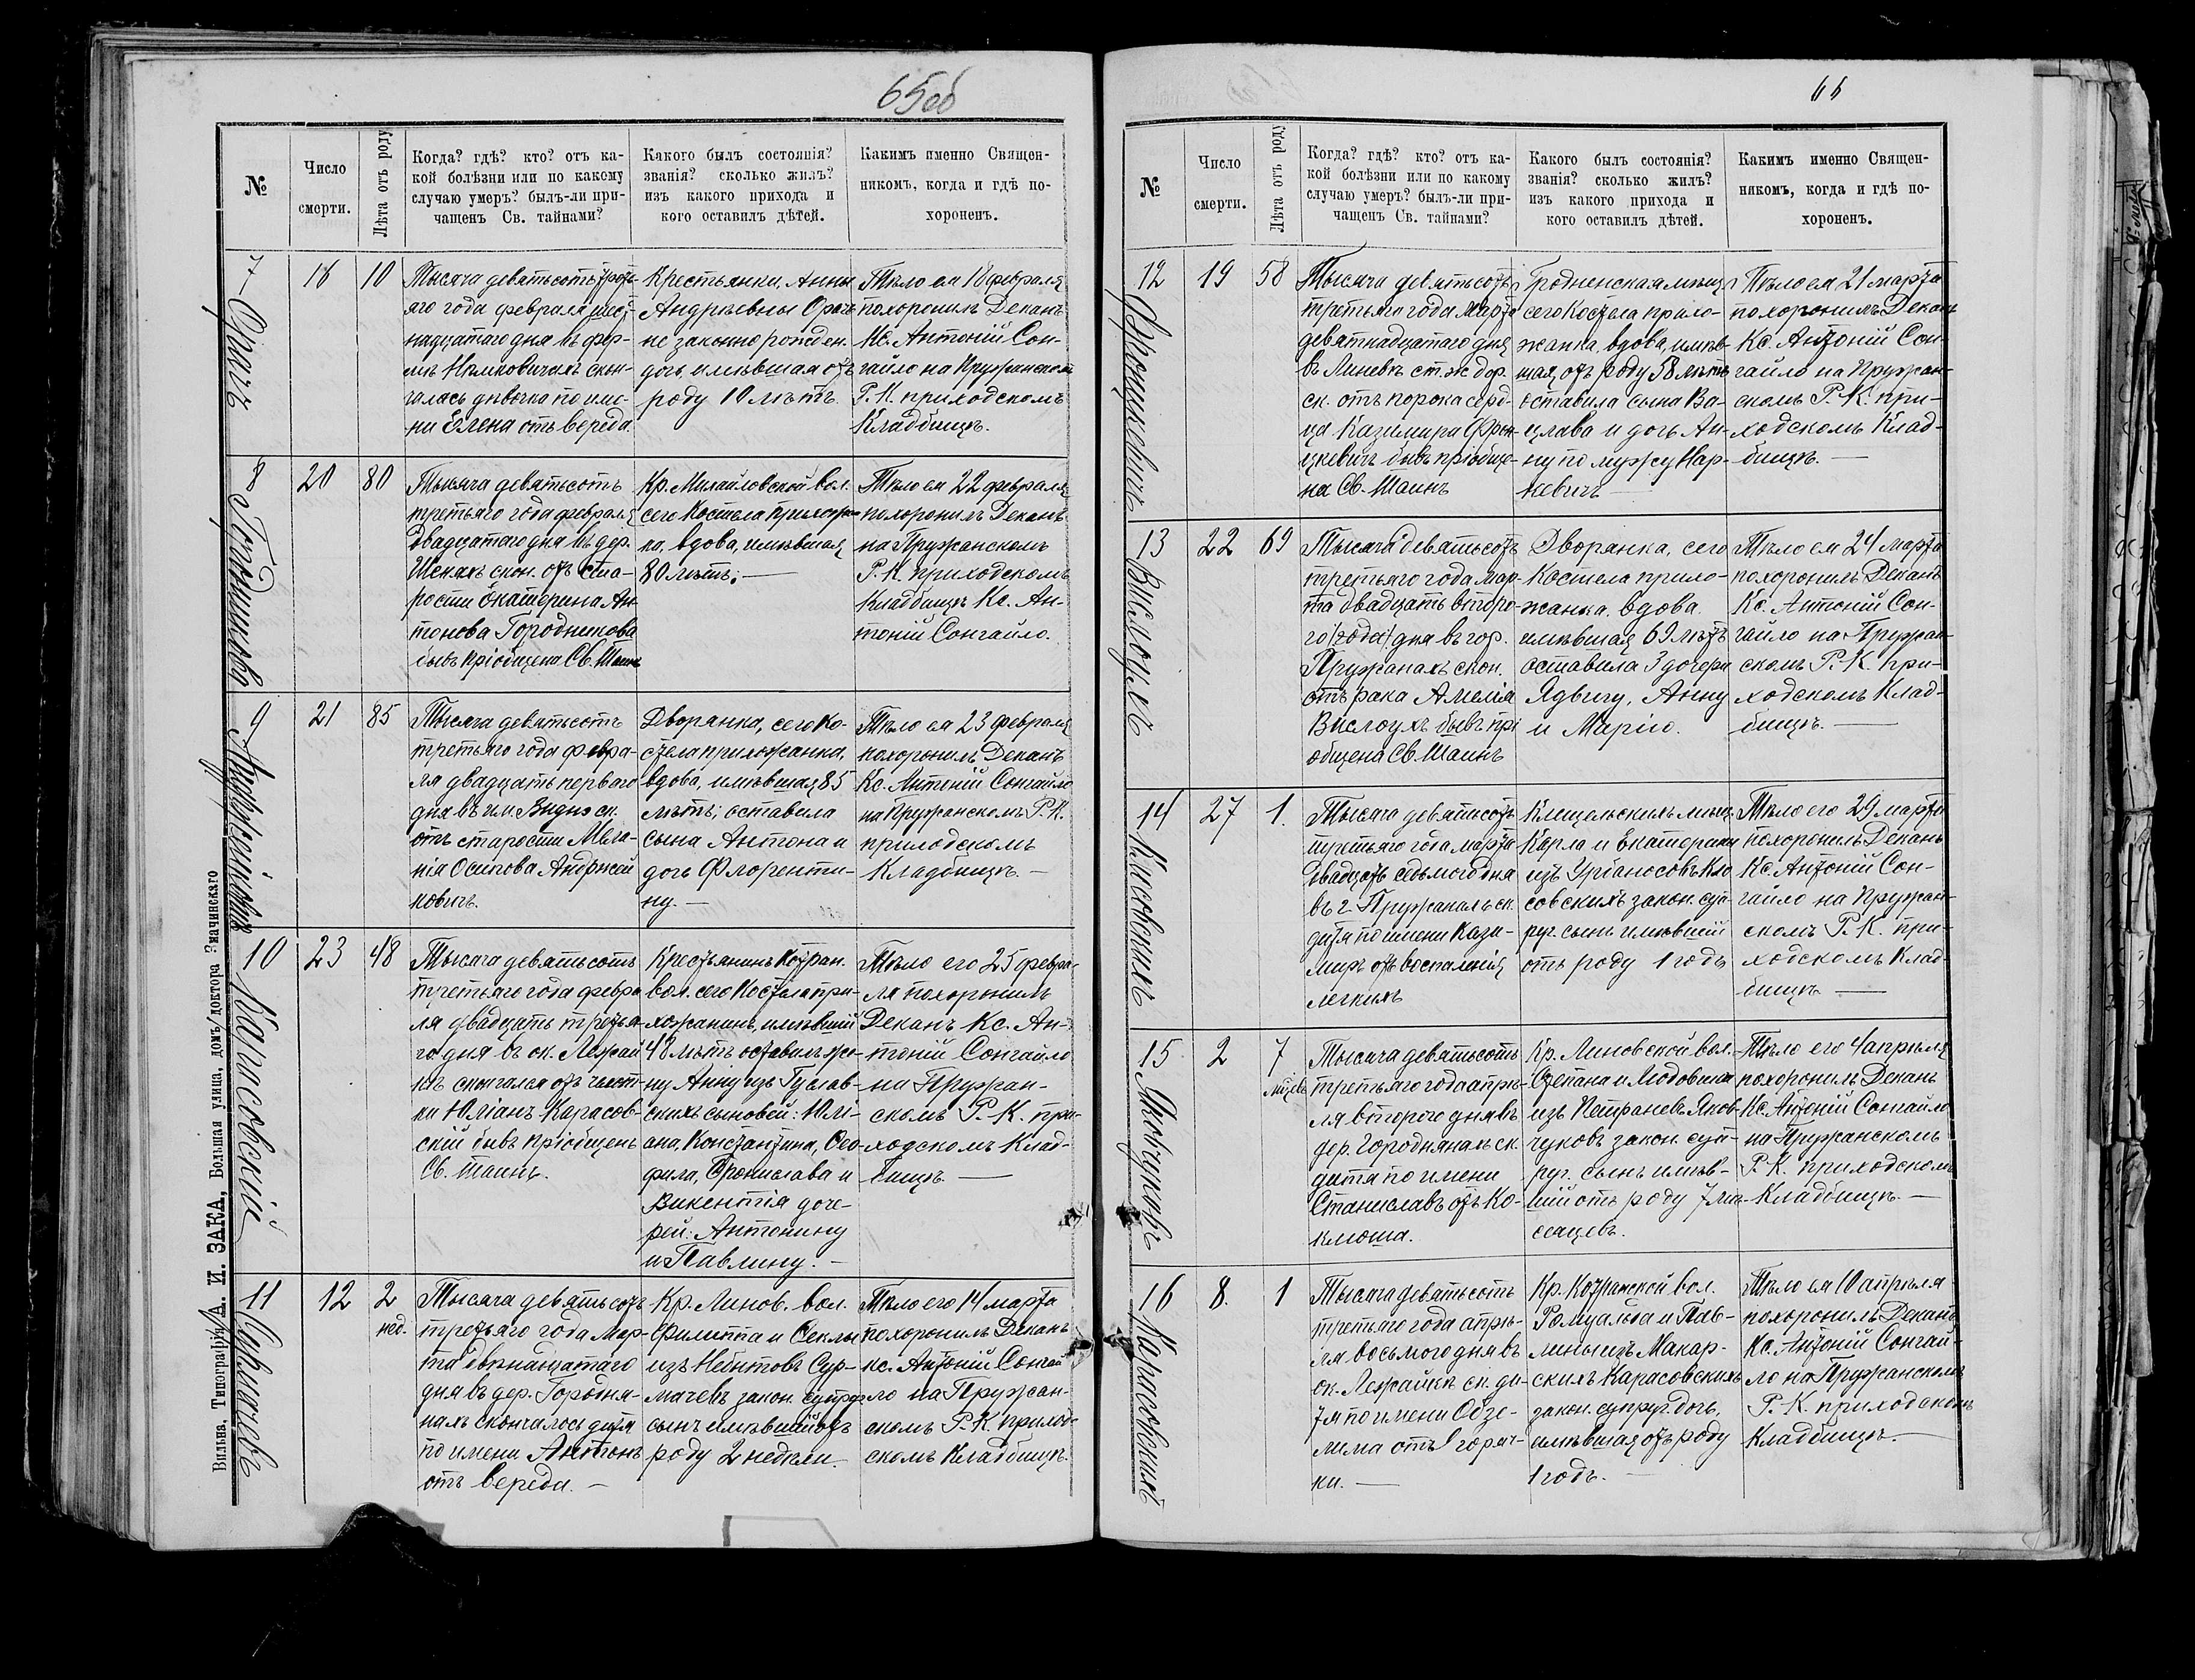 65об
№
Число
смерти.
Лѣта отъ роду
Когда? гдѣ? кто? отъ ка-
кой болѣзни или по какому
случаю умеръ? былъ-ли при-
чащенъ Св. тайнами?
Какого былъ состоянія?
званія? сколько жилъ?
изъ какого прихода и
кого оставилъ дѣтей.
Какимъ именно Священ-
никомъ, когда и гдѣ по-
хороненъ.
7
18
10
Тысяча девятьсотъ треть-
яго года февраля шест-
надцатаго дня въ дер-
скон-
чалась дѣвочка по име-
ни Елена отъ вереда.
Крестьянки, Анны
Андреевны
не законно рожден.
дочь, имѣвшая отъ
роду 10 лѣтъ.
Тѣло ея 18 февраля
похоронилъ Деканъ
Кс. Антоній Сон-
гайло на Пружанскомъ
Р. К. приходскомъ
Кладбищѣ.
8
Городникова
20
80
Тысяча девятьсотъ
третьяго года февраля
двадцатаго дня въ дер.
скон. отъ ста-
рости Екатерина Ан
тонова Городникова
бывъ пріобщена Св. Таинъ
Кр. Михайловской вол.
сего Костела прихожан
ка, вдова, имѣвшая
80 лѣтъ; —
Тѣло ея 22 февраля
похоронилъ Деканъ
на Пружанскомъ
Р. К. приходскомъ
Кладбищѣ Кс. Ан-
тоній Сонгайло.
9
Андржейковичъ
21
85
Тысяча девятьсотъ
третьяго года февра-
ля двадцать перваго
дня въ им. ск.
отъ старости Мела-
нія Осипова Андржей
ковичъ.
Дворянка, сего Ко-
стела прихожанка,
вдова, имѣвшая 85
лѣтъ; оставила
сына Антона и
дочь Флоренти-
ну. —
Тѣло ея 23 февраля
похоронилъ Деканъ
Кс. Антоній Сонгайло
на Пружанскомъ Р. К.
приходскомъ
Кладбищѣ. —
10
Карасовскій
23
48
Тысяча девятьсотъ
третьяго года февра
ля двадцать третья-
го дня въ ок. Лежай
кѣ скончался отъ чахот-
ки Юліанъ Карасов-
скій бывъ пріобщенъ
Св. Таинъ.
Крестьянинъ Котран.
вол. сего Костела при-
хожанинъ, имѣвшій
48 лѣтъ оставилъ же-
ну Анну изъ Гуслав-
скихъ сыновей: Юлі-
ана, Константина, Ѳео-
фила, Бронислава и
Викентія доче-
рей: Антонину
и Павлину. —
Тѣло его 25 февра-
ля похоронилъ
Деканъ Кс. Ан-
тоній Сонгайло
на Пружан-
скомъ Р. К. при-
ходскомъ Клад-
бищѣ —
11
Сурмачевъ
12
2
нед.
Тысяча девятьсотъ
третьяго года мар-
та двѣнадцатаго
дня въ дер. Городня-
нахъ скончалось дитя
по имени Антонъ
отъ вереда. —
Кр. Линов. вол.
Филиппа и Ѳеклы
изъ Сур-
мачевъ закон. супруг.
сынъ имѣвшій отъ
роду 2 недѣли.
Тѣло его 14 марта
похоронилъ Деканъ
Кс. Антоній Сонгай
ло на Пружан-
скомъ Р. К. приход-
скомъ Кладбищѣ.
Вильна. Типографія А. И. ЗАКА, Большая улица, домъ доктора Значинскаго
66
№
Число
смерти.
Лѣта отъ роду
Когда? гдѣ? кто? отъ ка-
кой болѣзни или по какому
случаю умеръ? былъ-ли при-
чащенъ Св. тайнами?
Какого былъ состоянія?
званія? сколько жилъ?
изъ какого прихода и
кого оставилъ дѣтей.
Какимъ именно Священ-
никомъ, когда и гдѣ по-
хороненъ.
12
Фронцкевичъ
19
58
Тысяча девятьсотъ
третьяго года марта
девятнадцатаго дня
въ Линевкѣ ст. ж. дор.
ск. отъ порока серд-
ца Казимира Фрон-
цкевичъ бывъ пріобще-
на Св. Таинъ
Гродненская мѣщ.
сего Костела прихо-
жанка, вдова, имѣв-
шая отъ роду 58 лѣтъ
оставила сына Ва-
цлава и дочь Ан-
ну по мужу Нар-
кевичъ —
Тѣло ея 21 марта
похоронилъ Деканъ
Кс. Антоній Сон-
гайло на Пружан-
скомъ Р. К. при-
ходскомъ Клад-
бищѣ. —
13
Вислоухъ
22
69
Тысяча девятьсотъ
третьяго года мар-
та двадцать второ-
го (года) дня въ гор.
Пружанахъ скон.
отъ рака Амелія
Вислоухъ бывъ прі
общена Св. Таинъ
Дворянка, сего
Костела прихо-
жанка. вдова.
имѣвшая 69 лѣтъ
оставила 3 дочери
Ядвигу, Анну
и Марію.
Тѣло ея 24 марта
похоронилъ Деканъ
Кс. Антоній Сон-
гайло на Пружан-
скомъ Р. К. при-
ходскомъ Клад-
бищѣ. —
14
Клосовскій
27
1.
Тысяча девятьсотъ
третьяго года марта
двадцать седьмого дня
въ г. Пружанахъ ск.
дитя по имени Кази-
миръ отъ воспаленія
легкихъ
Клещельскихъ мѣщ.
Карла и Екатерины
изъ Клo
совскихъ закон. суп-
руг. сынъ имѣвшій
отъ роду 1 годъ
Тѣло его 29 марта
похоронилъ Деканъ
Кс. Антоній Сон-
гайло на Пружан-
скомъ Р. К. при-
ходскомъ Клад-
бищѣ —
15
Яковчуковъ
2
7
мѣсяц.
Тысяча девятьсотъ
третьяго года апрѣ-
ля второго дня въ
дер. Городнянахъ ск.
дитя по имени
Станиславъ отъ Ко-
клюша.
Кр. Линовской вол.
Степана и Людовики
изъ Яков-
чуковъ закон. суп-
руг. сынъ имѣв-
шій отъ роду 7 мѣ-
сяцевъ.
Тѣло его 4 апрѣля
похоронилъ Деканъ
Кс. Антоній Сонгайло
на Пружанскомъ
Р. К. приходскомъ
Кладбищѣ. —
16
8.
1
Тысяча девятьсотъ
третьяго года апрѣ-
ля восьмого дня въ
ок. Лежайкѣ ск. ди-
тя по имени
отъ горяч-
ки. —
Кр. Котранской вол.
Ромуальда и Пав-
лины изъ Макар-
скихъ Карасовскихъ
закон. супруг. дочь,
имѣвшая отъ роду
1 годъ. —
Тѣло ея 10 апрѣля
похоронилъ Деканъ
Кс. Антоній Сонгай-
ло на Пружанскомъ
Р. К. приходскомъ
Кладбищѣ. —